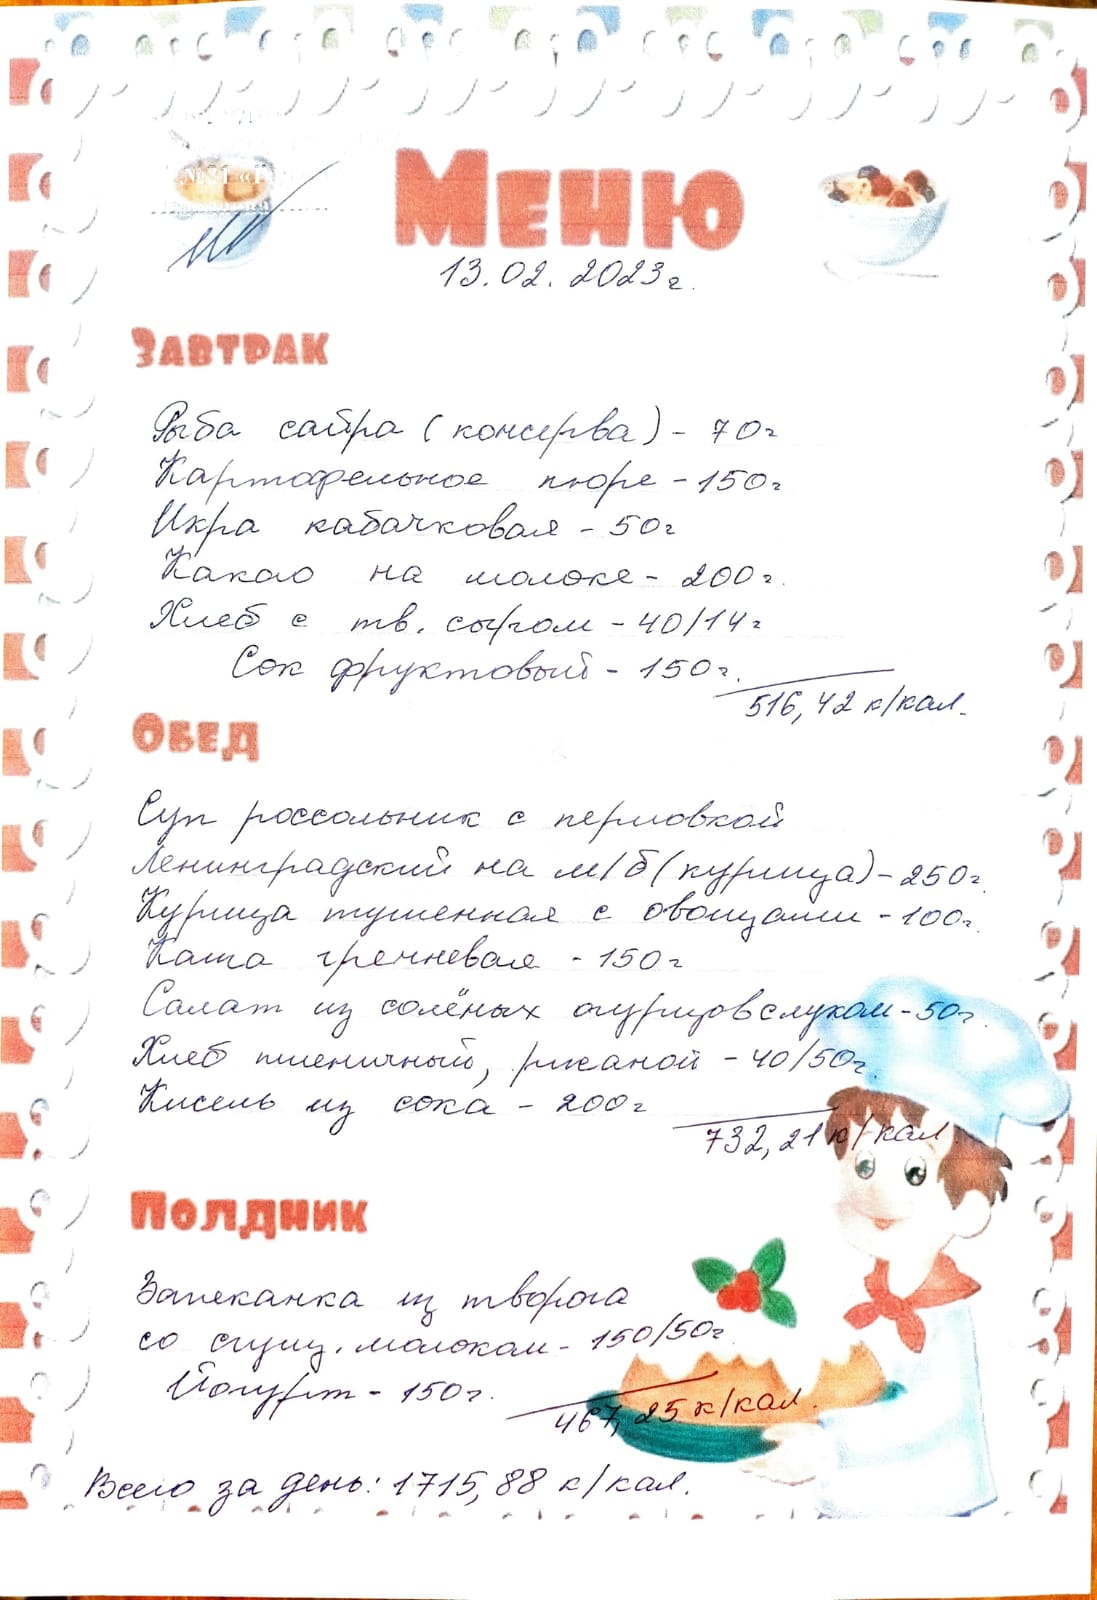 №21 «
Меню
13.02.2023г.
Завтрак
Рыба сайра (консерва) - 70г
Картофельное пюре - 150г
Икра кабачковая - 50г
Какао на молоке - 200г.
Хлеб с тв. сыром - 40/14г
Сок фруктовый - 150г.
516,42 к/кал.
Обед
Суп россольник с перловкой
Ленинградский на м/б (курица) - 250г.
Курица тушенная с овощами - 100г.
Каша гречневая - 150г
Салат из солёных огурцов с луком - 50г.
Хлеб пшеничный, ржаной - 40/50г.
Кисель из сока - 200г
732,21 к/кал.
Полдник
Запеканка из творога
со сгущ. молоком - 150/50г.
Йогурт - 150г.
467,25 к/кал.
Всего за день: 1715,88 к/кал.